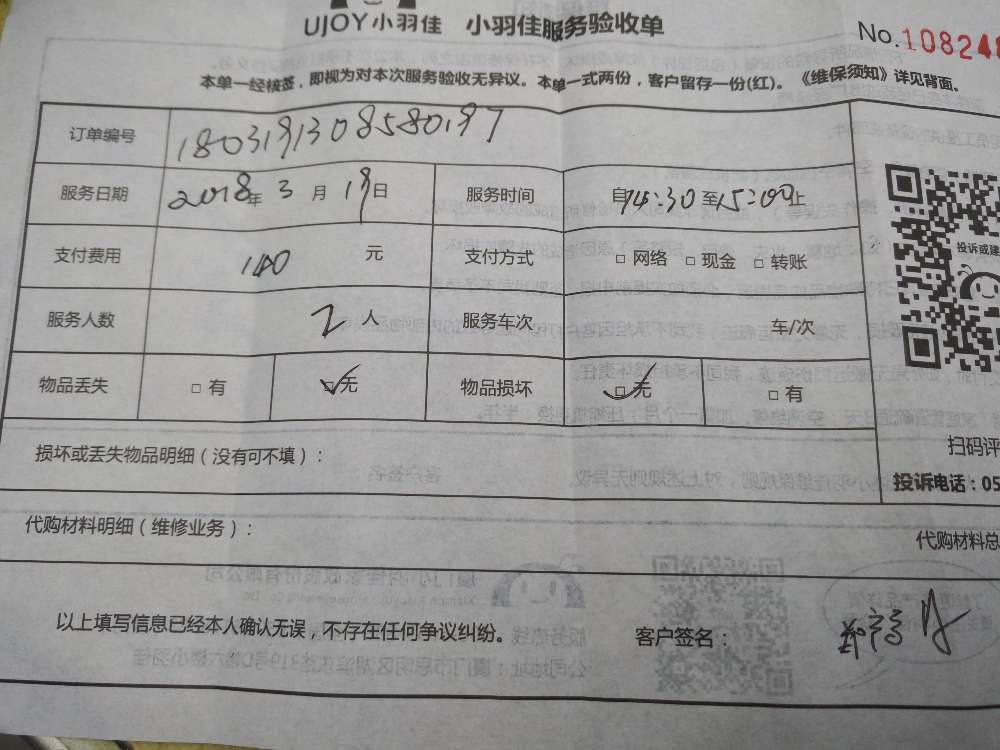 UJOY小羽佳 小羽佳服务验收单
No.108248
本单一经核签，即视为对本次服务验收无异议。本单一式两份，客户留存一份(红)。《维保须知》详见背面。
订单编号 1803191308580197
服务日期 2018年 3 月 19日 服务时间 自14:30至15:00止
支付费用 140 元 支付方式 □ 网络 □ 现金 □ 转账
投诉或建
服务人数 2 人 服务车次 车/次
物品丢失 □ 有 □无 物品损坏 □无 □ 有
损坏或丢失物品明细（没有可不填）：
扫码评
投诉电话：05
代购材料明细（维修业务）：
代购材料总
以上填写信息已经本人确认无误，不存在任何争议纠纷。 客户签名：